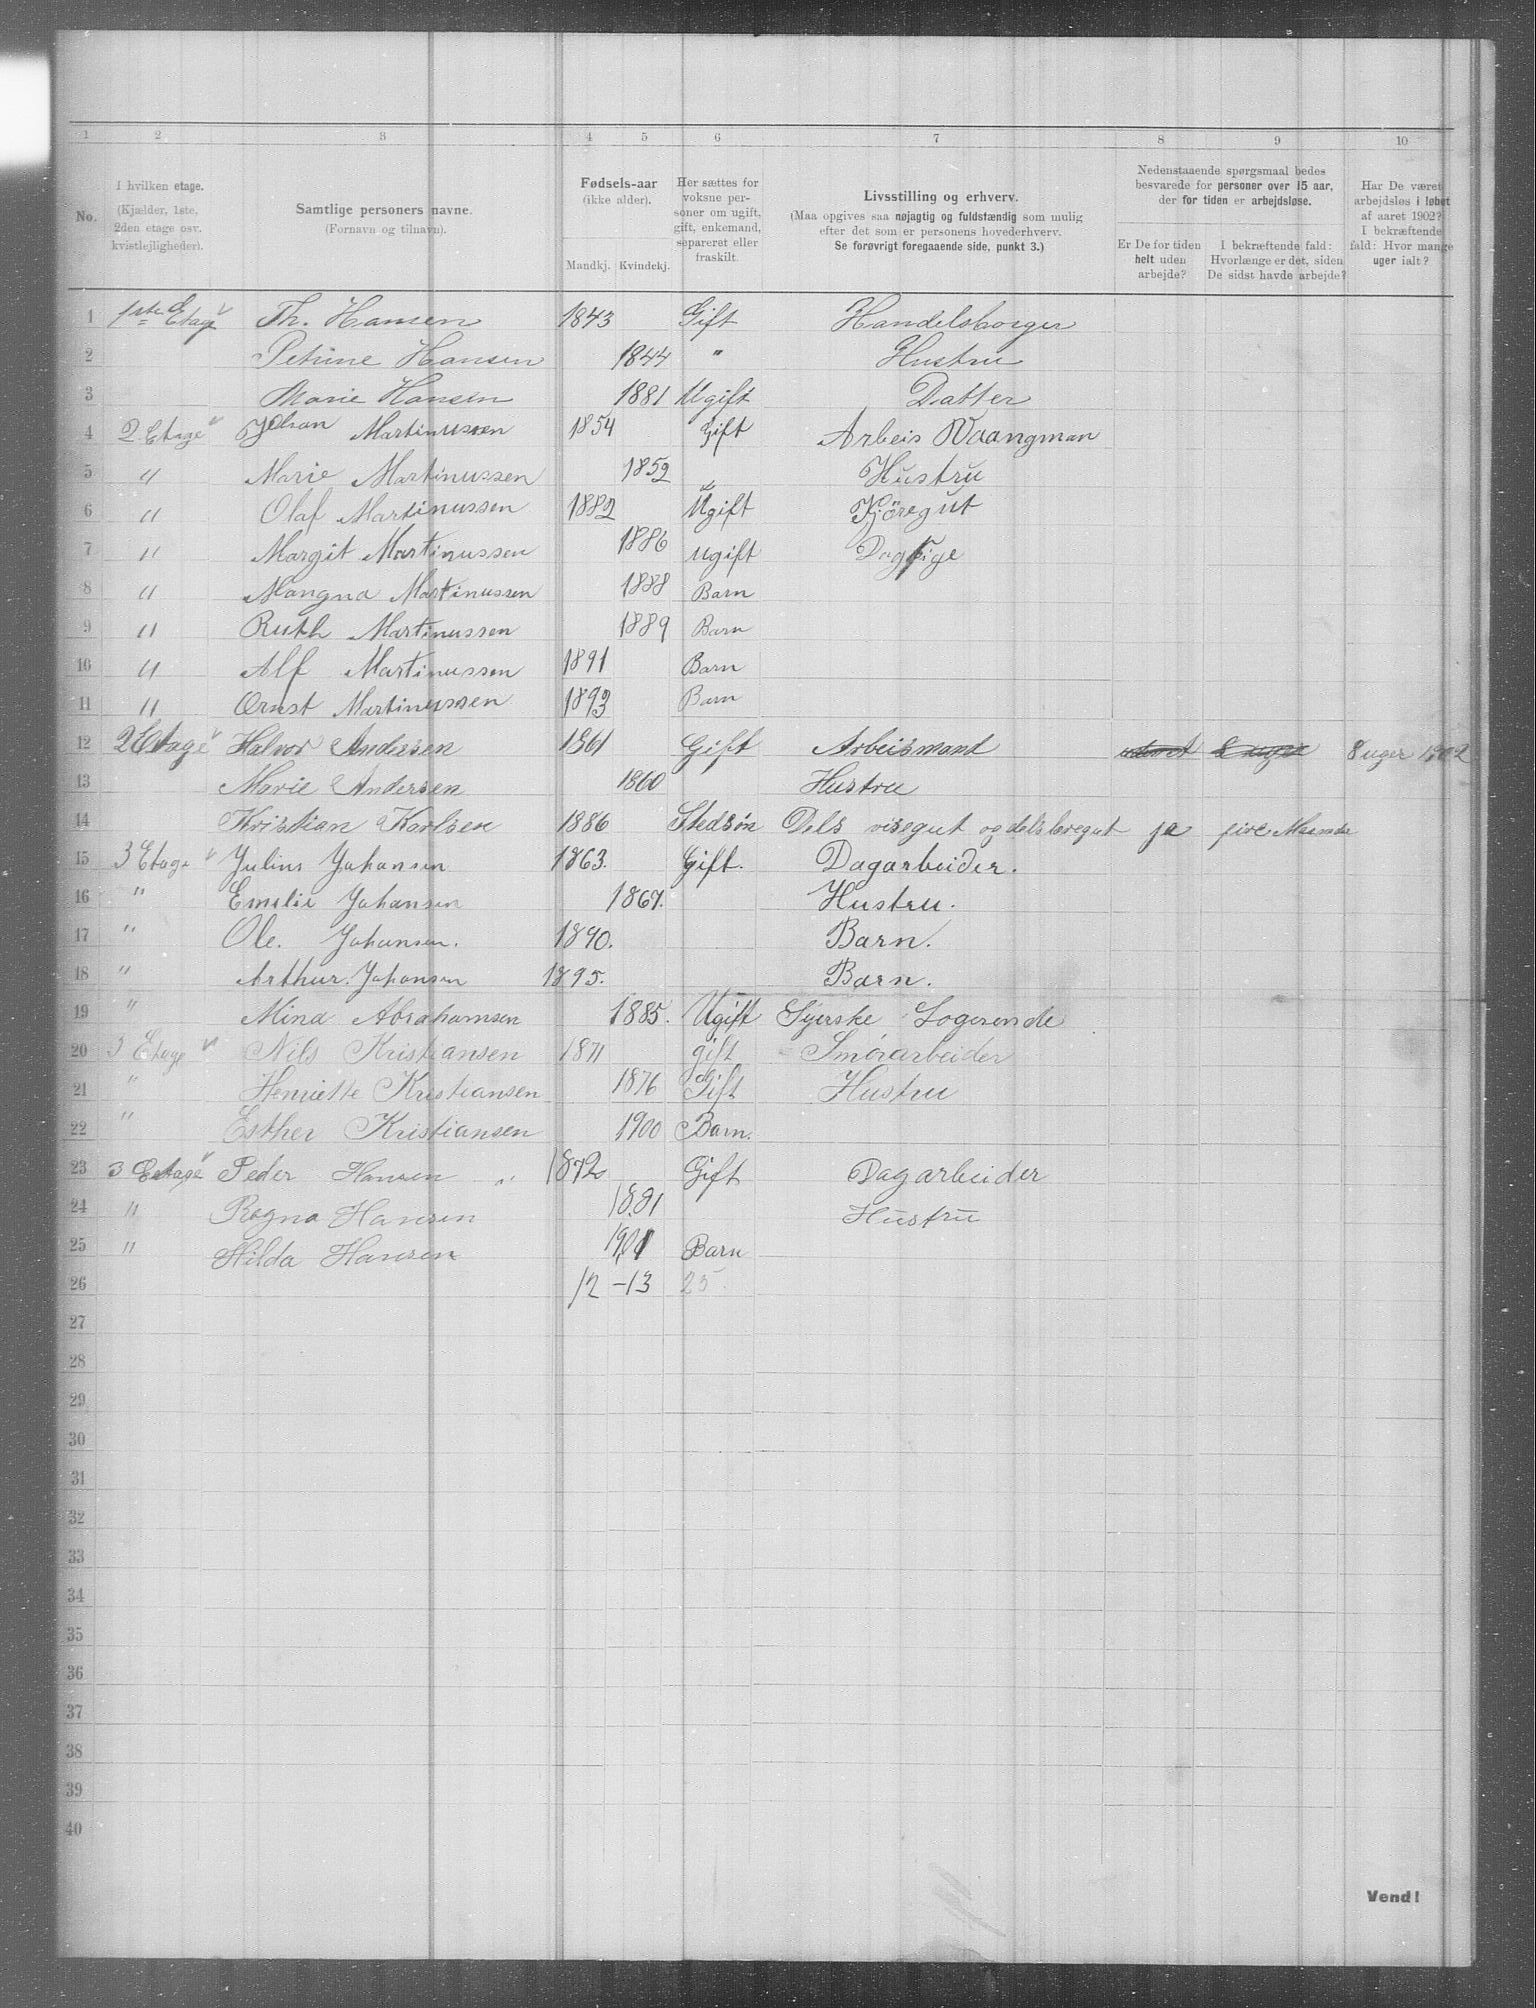 1 2 3 4 5 6 7 8 9 10
No.
I hvilken etage.
(Kjælder, 1ste,
2den etage osv.
kvistlejligheder).
Samtlige personers navne.
(Fornavn og tilnavn).
Fødsels-aar
(ikke alder).
Mandkj. Kvindekj.
Her sættes for
voksne per-
soner om ugift,
gift, enkemand,
separeret eller
fraskilt.
Livsstilling og erhverv.
(Maa opgives saa nøjagtig og fuldstændig som mulig
efter det som er personens hovederhverv.
Se forøvrigt foregaaende side, punkt 3.)
Nedenstaaende spørgsmaal bedes
besvarede for personer over 15 aar,
der for tiden er arbejdsløse.
Er De for tiden
helt uden
arbejde?
I bekræftende fald:
Hvorlænge er det, siden
De sidst havde arbejde?
Har De været
arbejdsløs i løbet
af aaret 1902?
I bekræftende
fald: Hvor mange
uger ialt?
1 1ste Etage Th. Hansen 1843 Gift Handelsborger
2 Petrine Hansen 1844 " Hustru
3 Marie Hansen 1881 Ugift Datter
4 2 Etage Johan Martinussen 1854 Gift Arbeis Vaangman
5 " Marie Martinussen 1852 " Hustru
6 " Olaf Martinussen 1882 Ugift Kjöregut
7 " Margit Martinussen 1886 ugift Dagpige
8 " Mangna Martinussen 1888 Barn
9 " Ruth Martinussen 1889 Barn
10 " Alf Martinussen 1891 Barn
11 " Ernst Martinussen 1893 Barn
12 2 Etage Halvor Andersen 1861 Gift Arbeismand 8 uger 8 uger 1902
13 Marie Andersen 1860 Hustru
14 Kristian Karlsen 1886 Stedsøn Dels visegut og dels læregut ja fire Maaneder
15 3 Etage Julius Johansen 1863. Gift. Dagarbeider.
16 " Emelie Johansen 1867. Hustru.
17 " Ole. Johansen. 1890. Barn.
18 " Arthur. Johansen 1895. Barn.
19 " Mina Abrahamsen 1885. Ugift Syerske Logerende
20 3 Etage Nils Kristiansen 1871 gift Smörarbeider
21 " Henriette Kristiansen 1876 Gift Hustru
22 " Esther Kristiansen 1900 Barn.
23 3 Etage Peder Hansen " 1872 Gift Dagarbeider
24 " Ragna Hansen 1881 Hustru
25 " Hilda Hansen 1901 Barn
26 12 - 13 25
27
28
29
30
31
32
33
34
35
36
37
38
39
40
Vend!